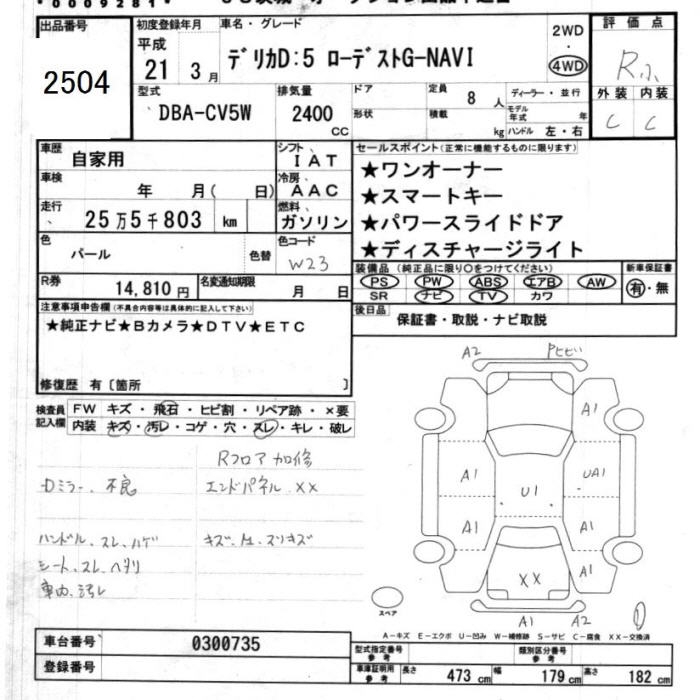 出品番号
2504
初度登録年月
平成
21 3月
車名・グレード
デリカD:5 ローデストG-NAVI
2WD
・
4WD
評価点
R
外装 内装
C C
型式
DBA-CV5W
排気量
2400
cc
ドア
形状
定員
8人
積載
kg
ディーラー・並行
モデル年式 年
ハンドル 左・右
車歴
自家用
シフト
IAT
車検
年 月( 日)
冷房
AAC
走行
25万5千803 km
燃料
ガソリン
色
パール
色替
色コード
W23
R券
14,810円
名変通知期限
月 日
セールスポイント(正常に機能するものに限ります)
★ワンオーナー
★スマートキー
★パワースライドドア
★ディスチャージライト
装備品(純正品に限り○をつけてください)
PS PW ABS エアB AW
SR ナビ TV カワ
新車保証書
有・無
後日品
保証書・取説・ナビ取説
注意事項申告欄(不具合内容等は具体的に記入して下さい)
★純正ナビ★Bカメラ★DTV★ETC
修復歴 有〔箇所 〕
検査員記入欄
FW キズ・飛石・ヒビ割・リペア跡・×要
内装 キズ・汚レ・コゲ・穴・スレ・キレ・破レ
Rフロア 加修
Dミラー、不良
エンドパネル、XX
ハンドル、スレ、ハゲ
シート、スレ、ヘタリ
車内、汚レ
A2
A1
A1
UA1
U1
A1
A1
A1
XX
A1
A2
スペア
A-キズ E-エクボ U-凹み W-補修跡 S-サビ C-腐食 XX-交換済
車台番号
0300735
登録番号
型式指定番号
参考
類別区分番号
参考
車庫証明用
参考
長さ 473cm 幅 179cm 高さ 182cm